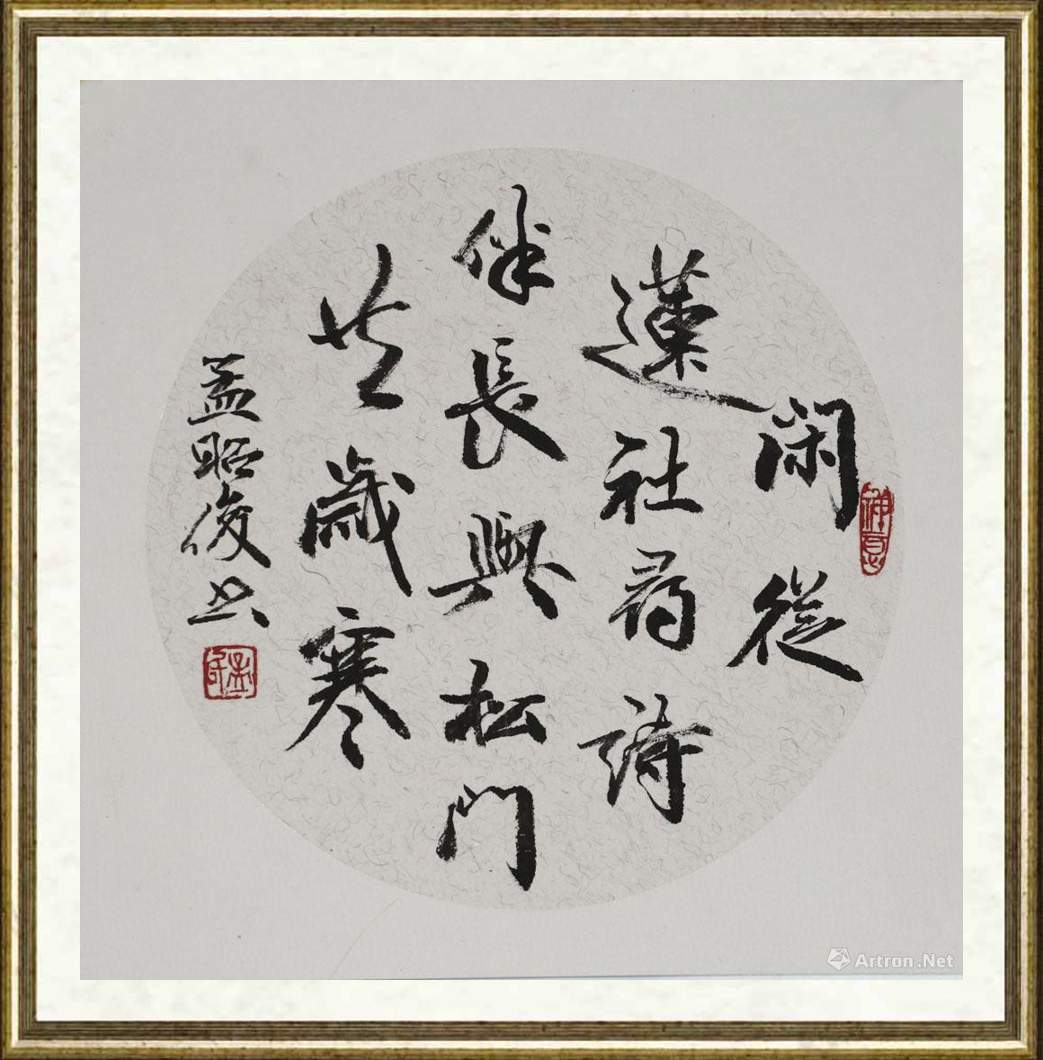 闲從
蓮社尋詩
伴長與松門
共歲寒
孟昭俊书
Artron.Net